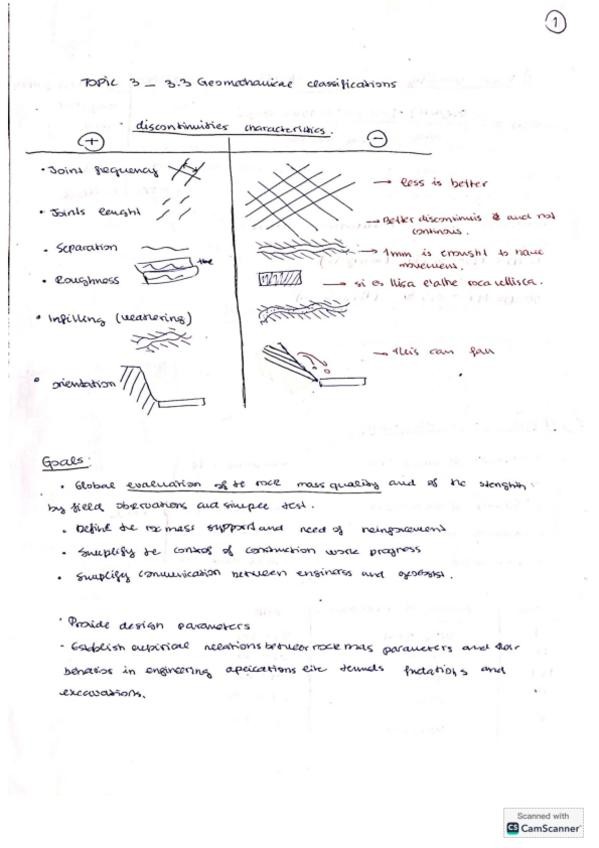 1
Topic 3 _ 3.3 Geomechanical classifications
discontinuities characteristics.
+
-
• Joint frequency
→ less is better
• Joints lenght
→ Better discontinuis and not
continous.
• Separation
→ 1mm is enought to have
movement.
• Roughness
→ si es llisa
• Infilling (weathering)
• orientation
→ this can fall
Goals:
• Global evaluation of te rock mass quality and of the stenghth
by field observations and simple test.
• Define the rock mass support and need of reinforcement
• Simplify te control of construction work progress
• Simplify communication between engineers and geologist.
• Provide design parameters
• Establish empirical relations between rock mas parameters and their
behavior in engineering aplications like tunnels fundations and
excavations.
Scanned with
CS CamScanner